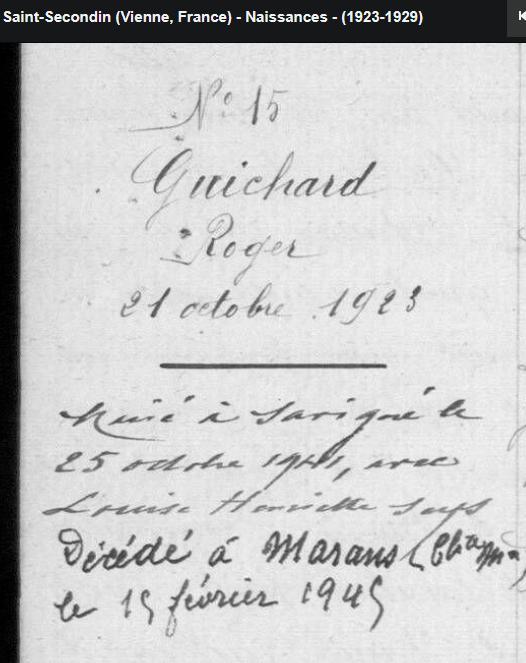 Saint-Secondin (Vienne, France) - Naissances - (1923-1929)
N° 15
Guichard
Roger
21 octobre 1923
Marié à Savigné le
25 octobre 1941, avec
Louise Henriette
Décédé à Marans (Chte Mme)
le 15 février 1945